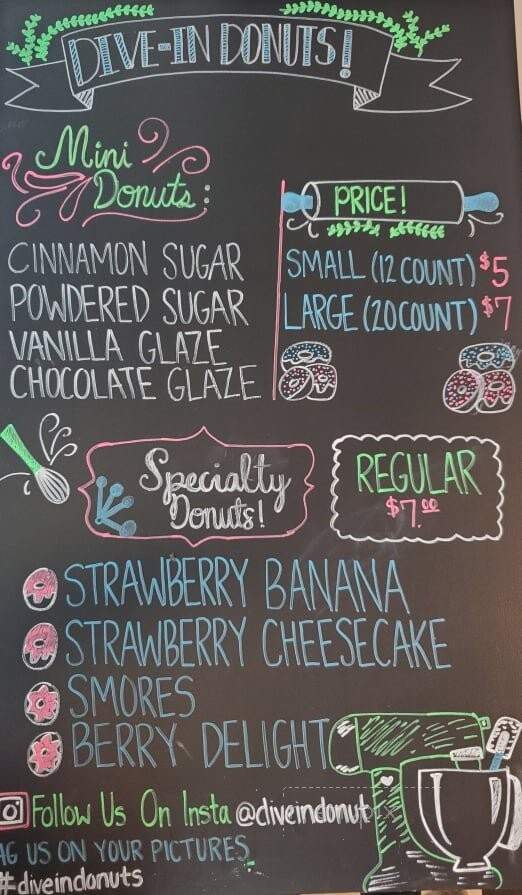 DIVE-IN DONUTS!
Mini
Donuts:
CINNAMON SUGAR
POWDERED SUGAR
VANILLA GLAZE
CHOCOLATE GLAZE
PRICE!
SMALL (12 COUNT) $5
LARGE (20 COUNT) $7
Specialty
Donuts!
REGULAR
$7.00
STRAWBERRY BANANA
STRAWBERRY CHEESECAKE
SMORES
BERRY DELIGHT
Follow Us On Insta @diveindonut
AG US ON YOUR PICTURES
#diveindonuts